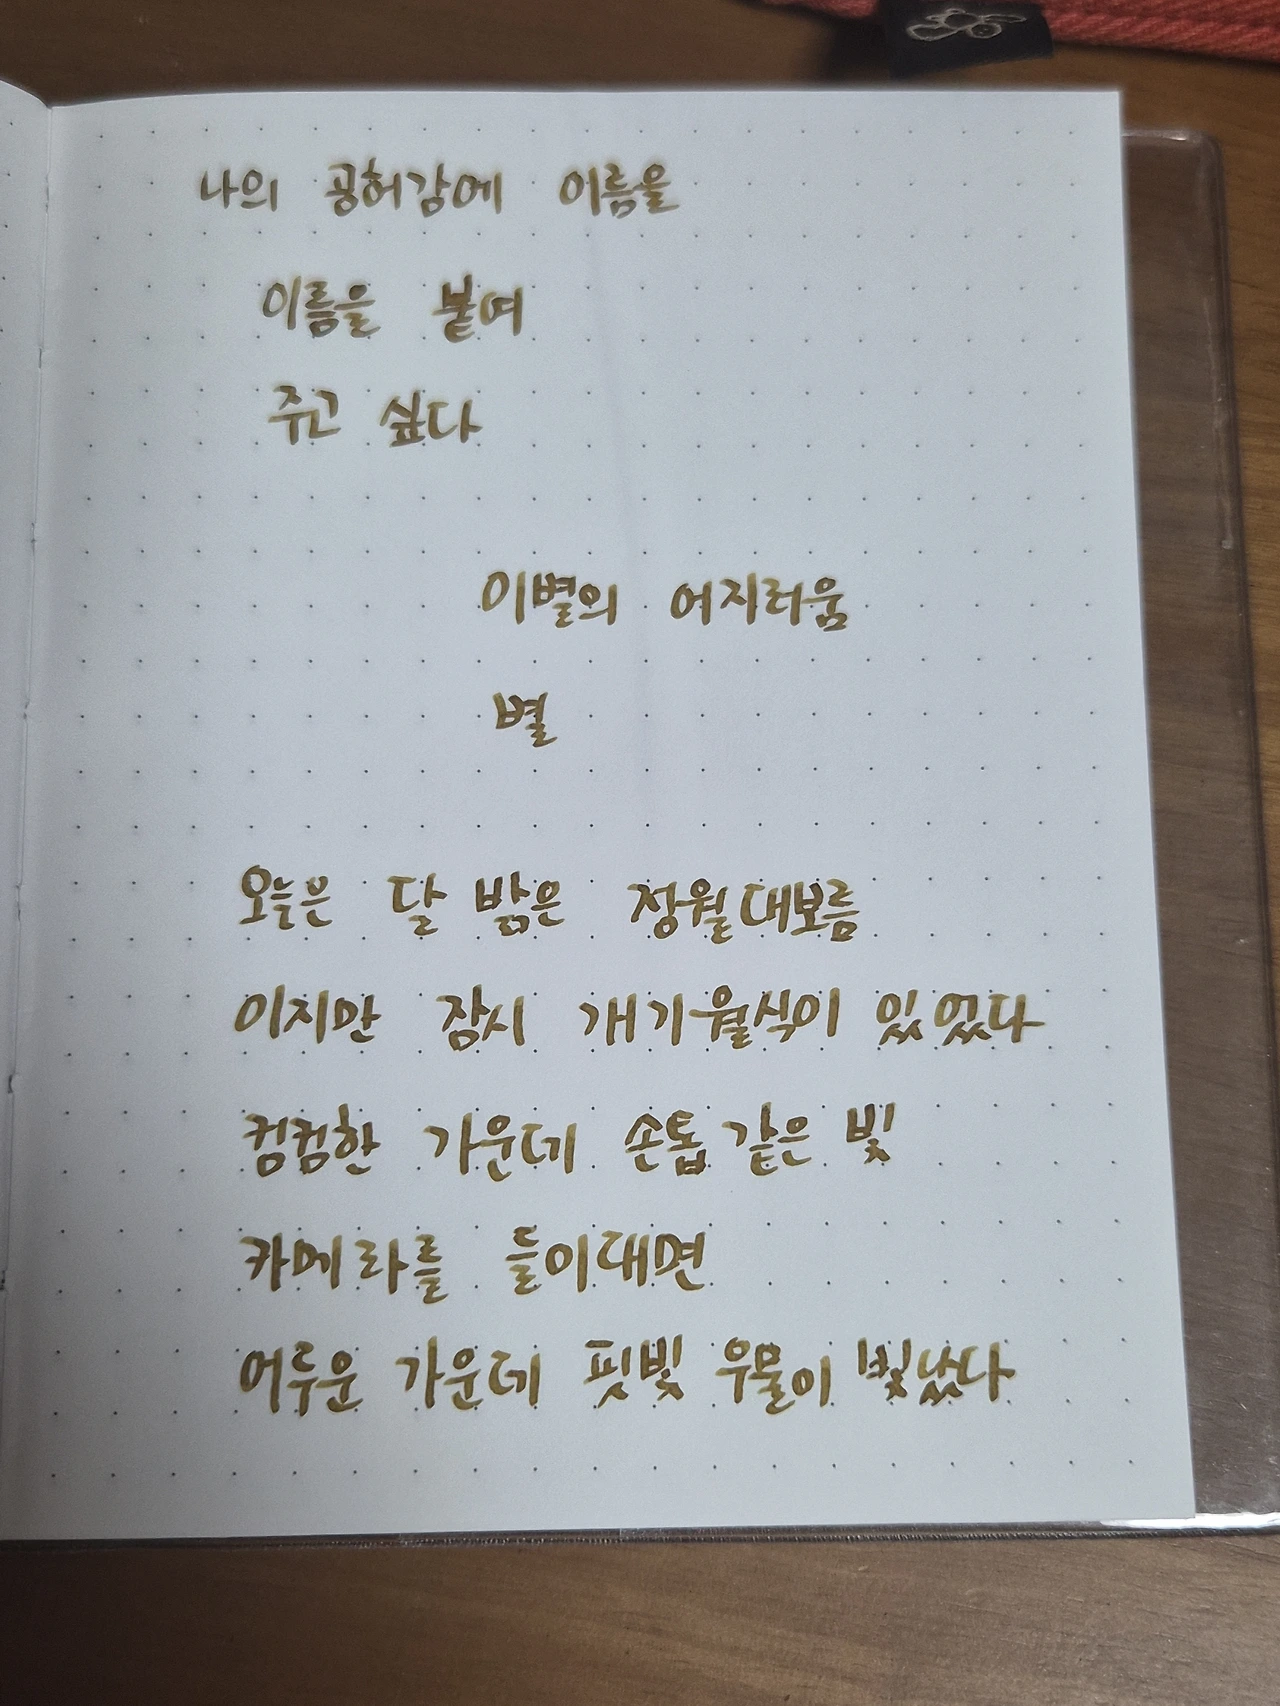 나의 공허감에 이름을
이름을 붙여
주고 싶다
이별의 어지러움
별
오늘은 달 밝은 정월대보름
이지만 잠시 개기월식이 있었다
컴컴한 가운데 손톱 같은 빛
카메라를 들이대면
어두운 가운데 핏빛 우물이 빛났다